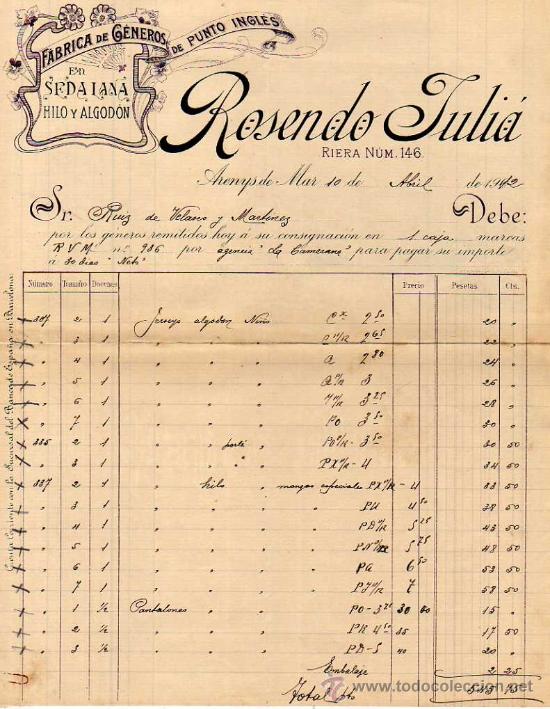 FÁBRICA DE GÉNEROS DE PUNTO INGLÉS
EN
SEDA LANA
HILO Y ALGODÓN
Rosendo Juliá
RIERA NÚM. 146.
Arenys de Mar 10 de Abril de 1912
Sr. Ruiz de Velasco y Martinez Debe:
por los géneros remitidos hoy á su consignación en 1 caja marcas
R V M nº 986 por agencia "La Camerana" para pagar su importe
á 30 dias "Neto"
Cuenta Corriente con la Sucursal del Banco de España en Barcelona.
Número Tamaño Docenas Precio Pesetas Cts.
307 2 1 Jerseys algodon Niño 2 50 20 "
" 3 1 " " " 2 65 22 "
" 4 1 " " " a 2 80 24 "
" 5 1 " " " 3 26 "
" 6 1 " " " 3 25 28 "
" 7 1 " " " PO 3 50 30 "
335 2 1 " " 3 50 30 50
" 3 1 " " 4 34 50
337 2 1 " hilo " mangas especiales 4 33 50
" 3 1 " " " " 4 50 38 50
" 4 1 " " " " 5 25 43 50
" 5 1 " " " " 5 75 48 50
" 6 1 " " " " Pa 6 50 53 50
" 7 1 " " " " 7 58 50
" 1 1/2 Pantalones " PO-3 20 30 60 15 "
" 2 1/2 " " 4 50 35 17 50
" 3 1/2 " " PD-5 40 20 "
Embalaje 2 25
Total pts
todocoleccion
www.todocoleccion.net